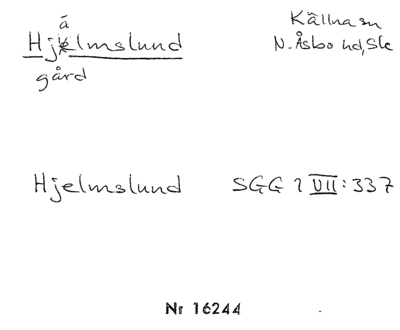 Hjälmslund
gård
Källna sn
N. Åsbo hd, Sk
Hjelmslund SGG 1 VII: 337
Nr 16244